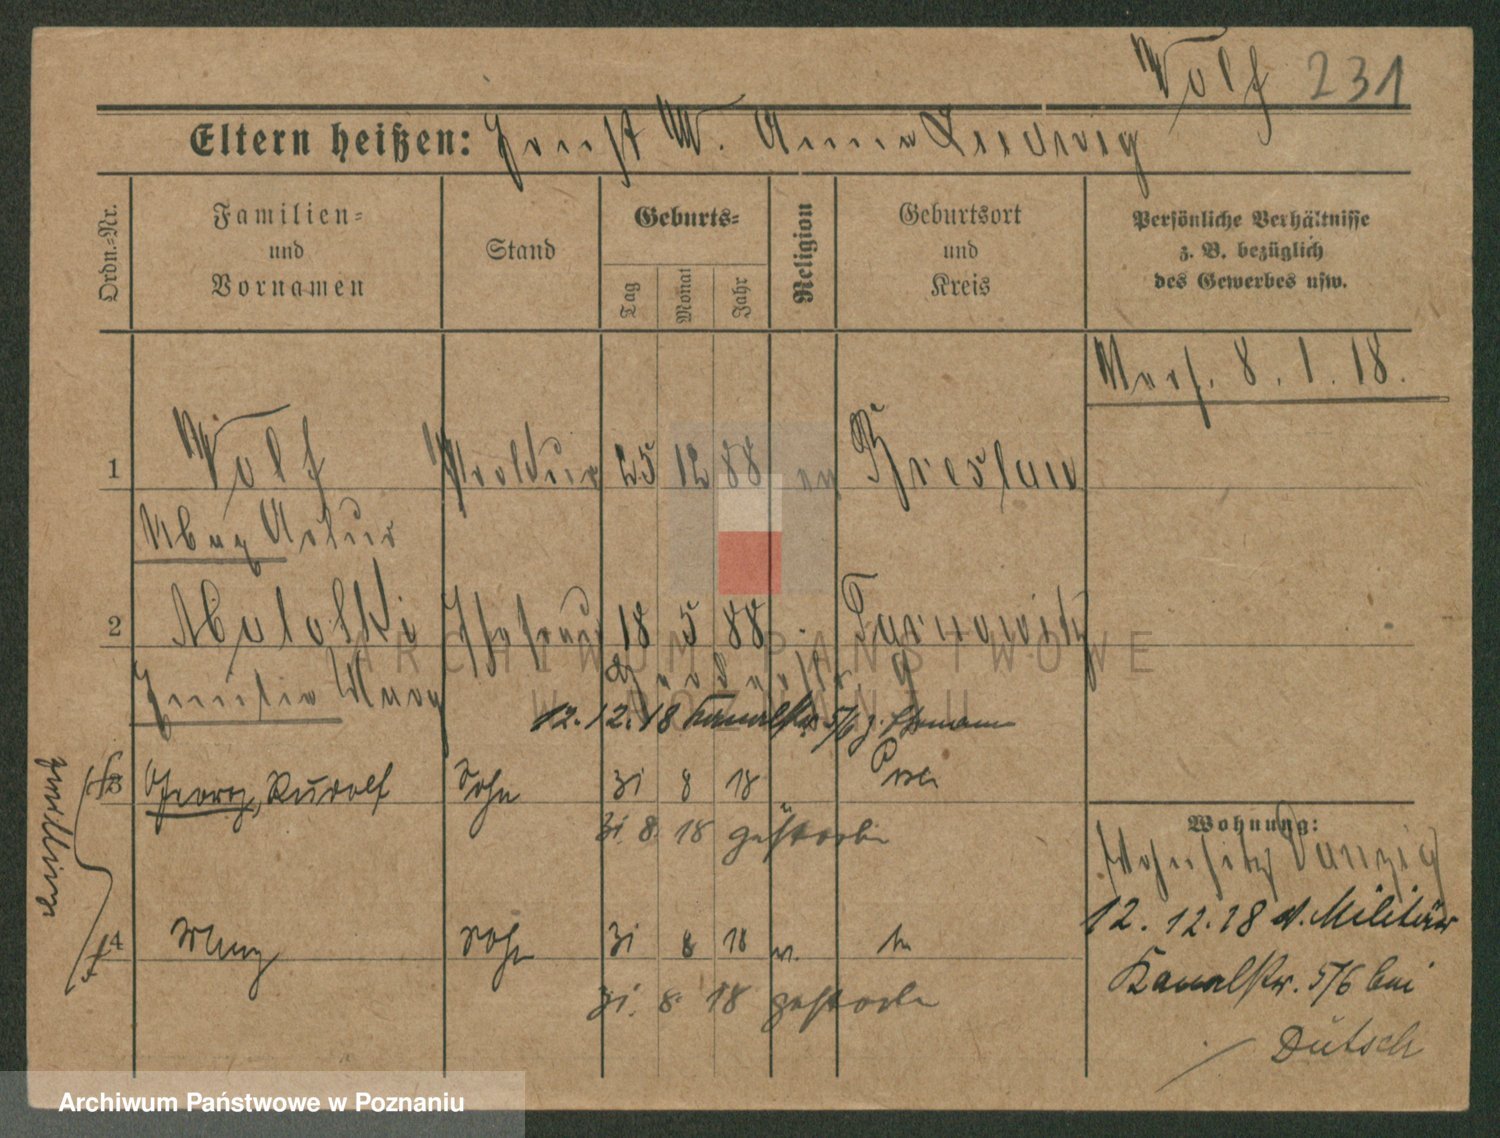 Wolf 231
Eltern heißen: Ernst W. Anna Ludwig
Ordn.-Nr.
Familien-
und
Vornamen
Stand
Geburts-
Tag
Monat
Jahr
Religion
Geburtsort
und
Kreis
Persönliche Verhältnisse
z. B. bezüglich
des Gewerbes usw.
8. 1. 18.
1 Wolf 25 12 88 ev Breslau
Artur
2 18 5 88 Tarnowitz
12. 12. 18 Kanalstr. 5/6 z. Ehemann
3 Georg, Rudolf Sohn 31 8 18 Posen
31. 8. 18 gestorben
Wohnung:
Wohnsitz Danzig
12. 12. 18 v. Militär
Kanalstr. 5/6 bei
Dütsch
4 Sohn 31 8 18
31. 8. 18 gestorben
Zwillinge
ARCHIWUM PAŃSTWOWE
W POZNANIU
Archiwum Państwowe w Poznaniu